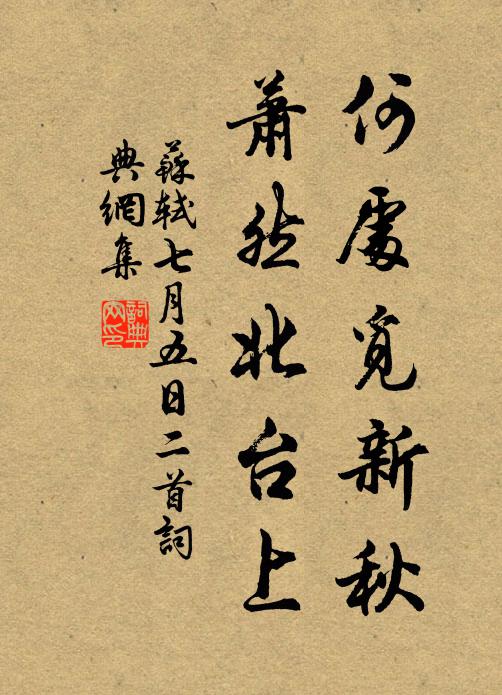 何處覓新秋
蕭然北台上
蘇軾七月五日二首詞
典網集
詞典
网印